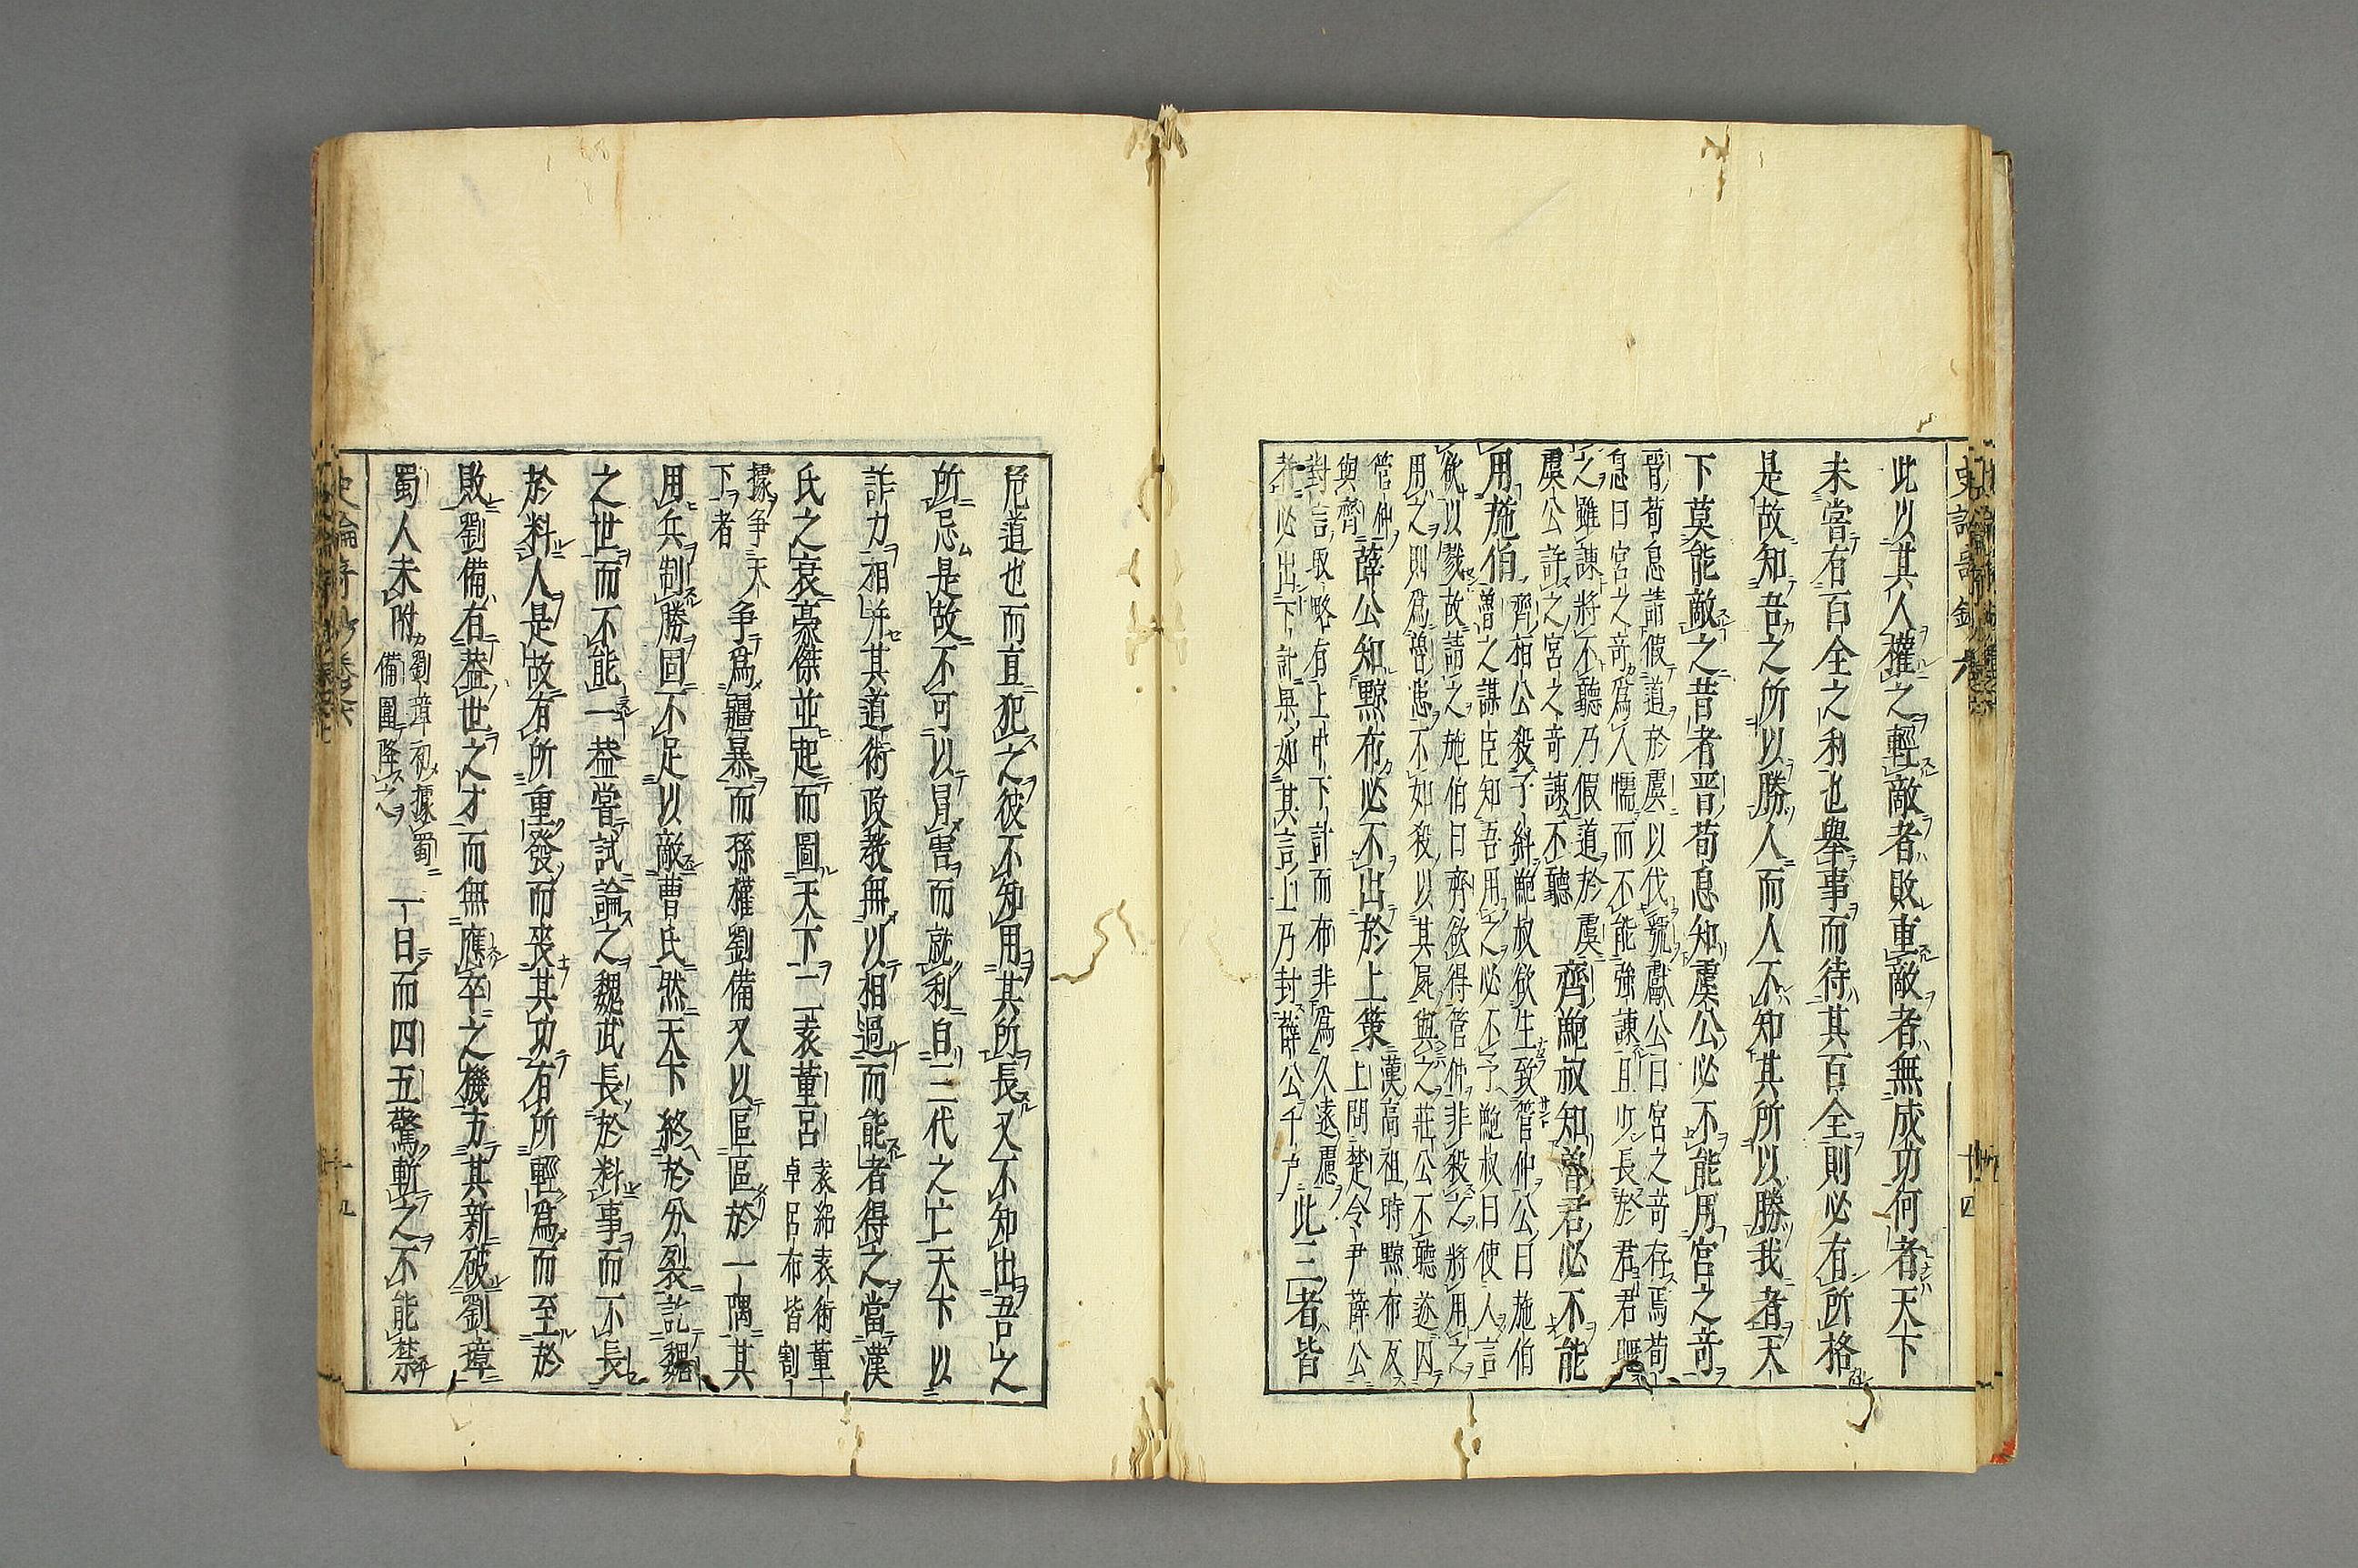 此以其人權之輕敵者敗重敵者無成功何者天下
未嘗有百全之利也舉事而待其百全則必有所格
是故知吾之所以勝人而人不知其所以勝我者天
下莫能敵之昔者晋荀息知虞公必不能用宮之奇
晋荀息請假道於虞以伐虢獻公曰宮之奇存焉荀
息曰宮之奇爲人懦而不能強諫且少長於君君暱
之雖諫將不聽乃假道於虞
虞公許之宮之奇諫不聽
齊鮑叔知魯君必不能
用施伯
齊桓公殺子糾鮑叔欲生致管仲公曰施伯
魯之謀臣知吾用之必不予鮑叔曰使人言
欲以戮故請之施伯曰齊欲得管仲非殺之將用之
用之則爲魯患不如殺以其屍與之莊公不聽遂囚
管仲
與齊
薛公知黥布必不出於上策
漢高祖時黥布反
上問楚令尹薛公
對言取略有上中下計而布非爲久遠慮
者必出下計果如其言上乃封薛公千户
此三者皆
危道也而直犯之彼不知用其所長又不知出吾之
所忌是故不可以冒害而就利自三代之亡天下以
詐力相并其道術政教無以相過而能者得之當漢
氏之衰豪傑並起而圖天下二袁董呂
袁紹袁術董
卓呂布皆割
據爭天
下者
爭爲疆暴而孫權劉備又以區區於一隅其
用兵制勝固不足以敵曹氏然天下終於分裂訖魏
之世而不能一蓋嘗試論之魏武長於料事而不長
於料人是故有所重發而喪其功有所輕爲而至於
敗劉備有蓋世之才而無應卒之機方其新破劉璋
蜀人未附
劉璋初據蜀
備圍降之
一日而四五驚斬之不能禁